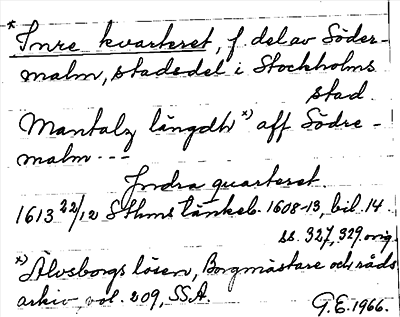 * Inre kvarteret, f. del av Söder-
malm, stadsdel i Stockholms
stad.
Mantalz längdh *) aff Södre-
malm ---
Indra quarteret.
1613 22/12 Sthms tänkeb. 1608-13, bil. 14.
ss. 327, 329. orig.
*) Älvsborgs lösen, Borgmästare och råds
arkiv, vol. 209, SSA.
G.E. 1966.